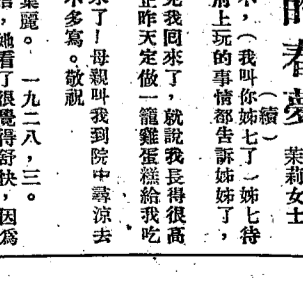 的春夢
(續) 茉莉女士
不,(我叫你姊七了)姊七待
府上玩的事情都告訴姊姊了,
見我回來了,就說我長得很高
在昨天定做一籠雞蛋糕給我吃
來了!母親叫我到院中尋涼去
不多寫。敬祝
葉麗。 一九二八,三。
她看了很覺得舒快,因爲